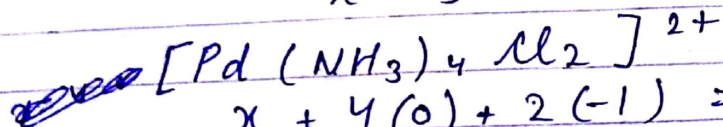 [Pd(NH₃)₄Cl₂]²⁺
x + 4(0) + 2(-1) =